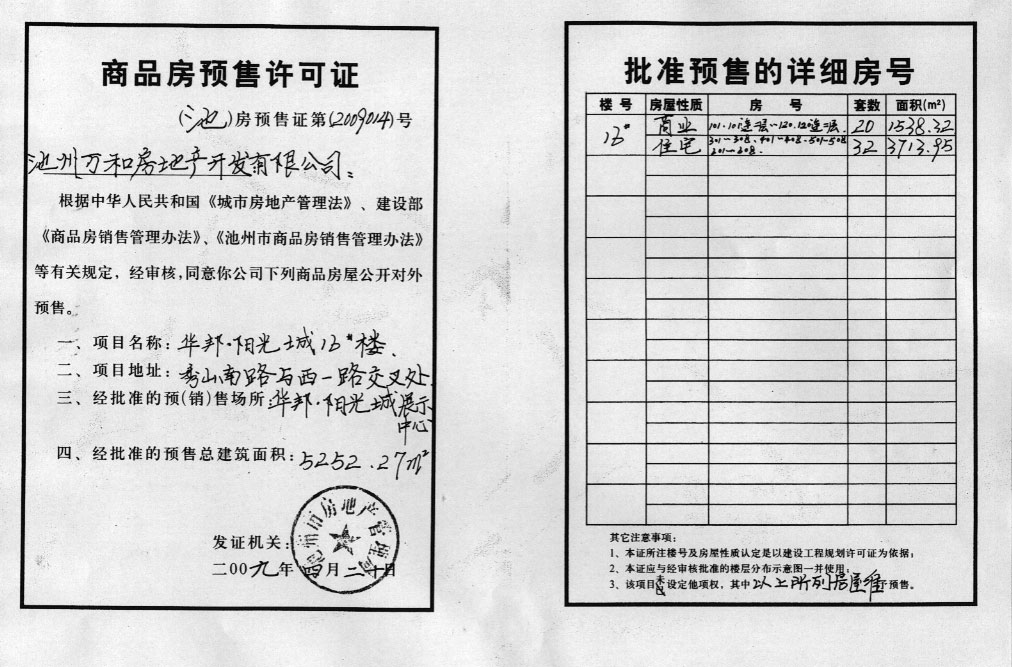 商品房预售许可证
(池)房预售证第(2009014)号
池州万和房地产开发有限公司：
根据中华人民共和国《城市房地产管理法》、建设部
《商品房销售管理办法》、《池州市商品房销售管理办法》
等有关规定，经审核，同意你公司下列商品房屋公开对外
预售。
一、项目名称：华邦·阳光城13#楼、
二、项目地址：秀山南路与西一路交叉处
三、经批准的预(销)售场所：华邦·阳光城展示
中心
四、经批准的预售总建筑面积：5252.27m²
池州市房地产管理局
发证机关：
二00九年四月二十日
批准预售的详细房号
楼号 房屋性质 房号 套数 面积(m²)
13# 商业 101.101连二层～120.120连二层. 20 1538.32
住宅 301～308、401～408.501～508 32 3713.95
601～608.
其它注意事项：
1、本证所注楼号及房屋性质认定是以建设工程规划许可证为依据；
2、本证应与经审核批准的楼层分布示意图一并使用；
3、该项目未设定他项权，其中以上所列房屋准予预售。